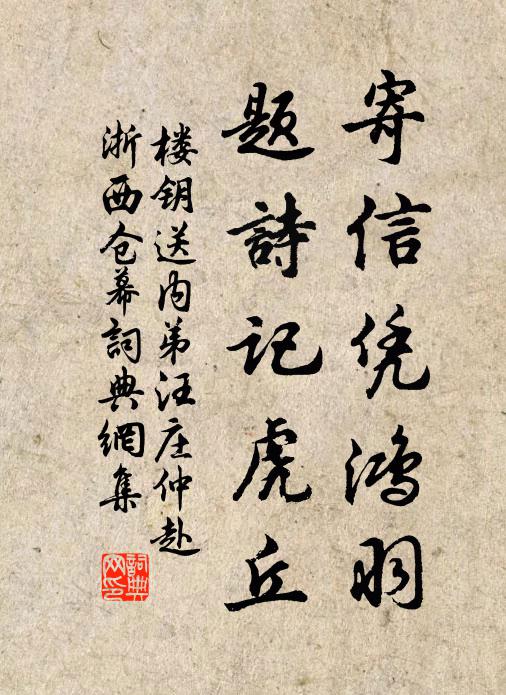 寄信凭鸿羽
题詩记虎丘
楼钥送内弟汪庄仲赴
浙西仓幕詞典網集
詞典网印